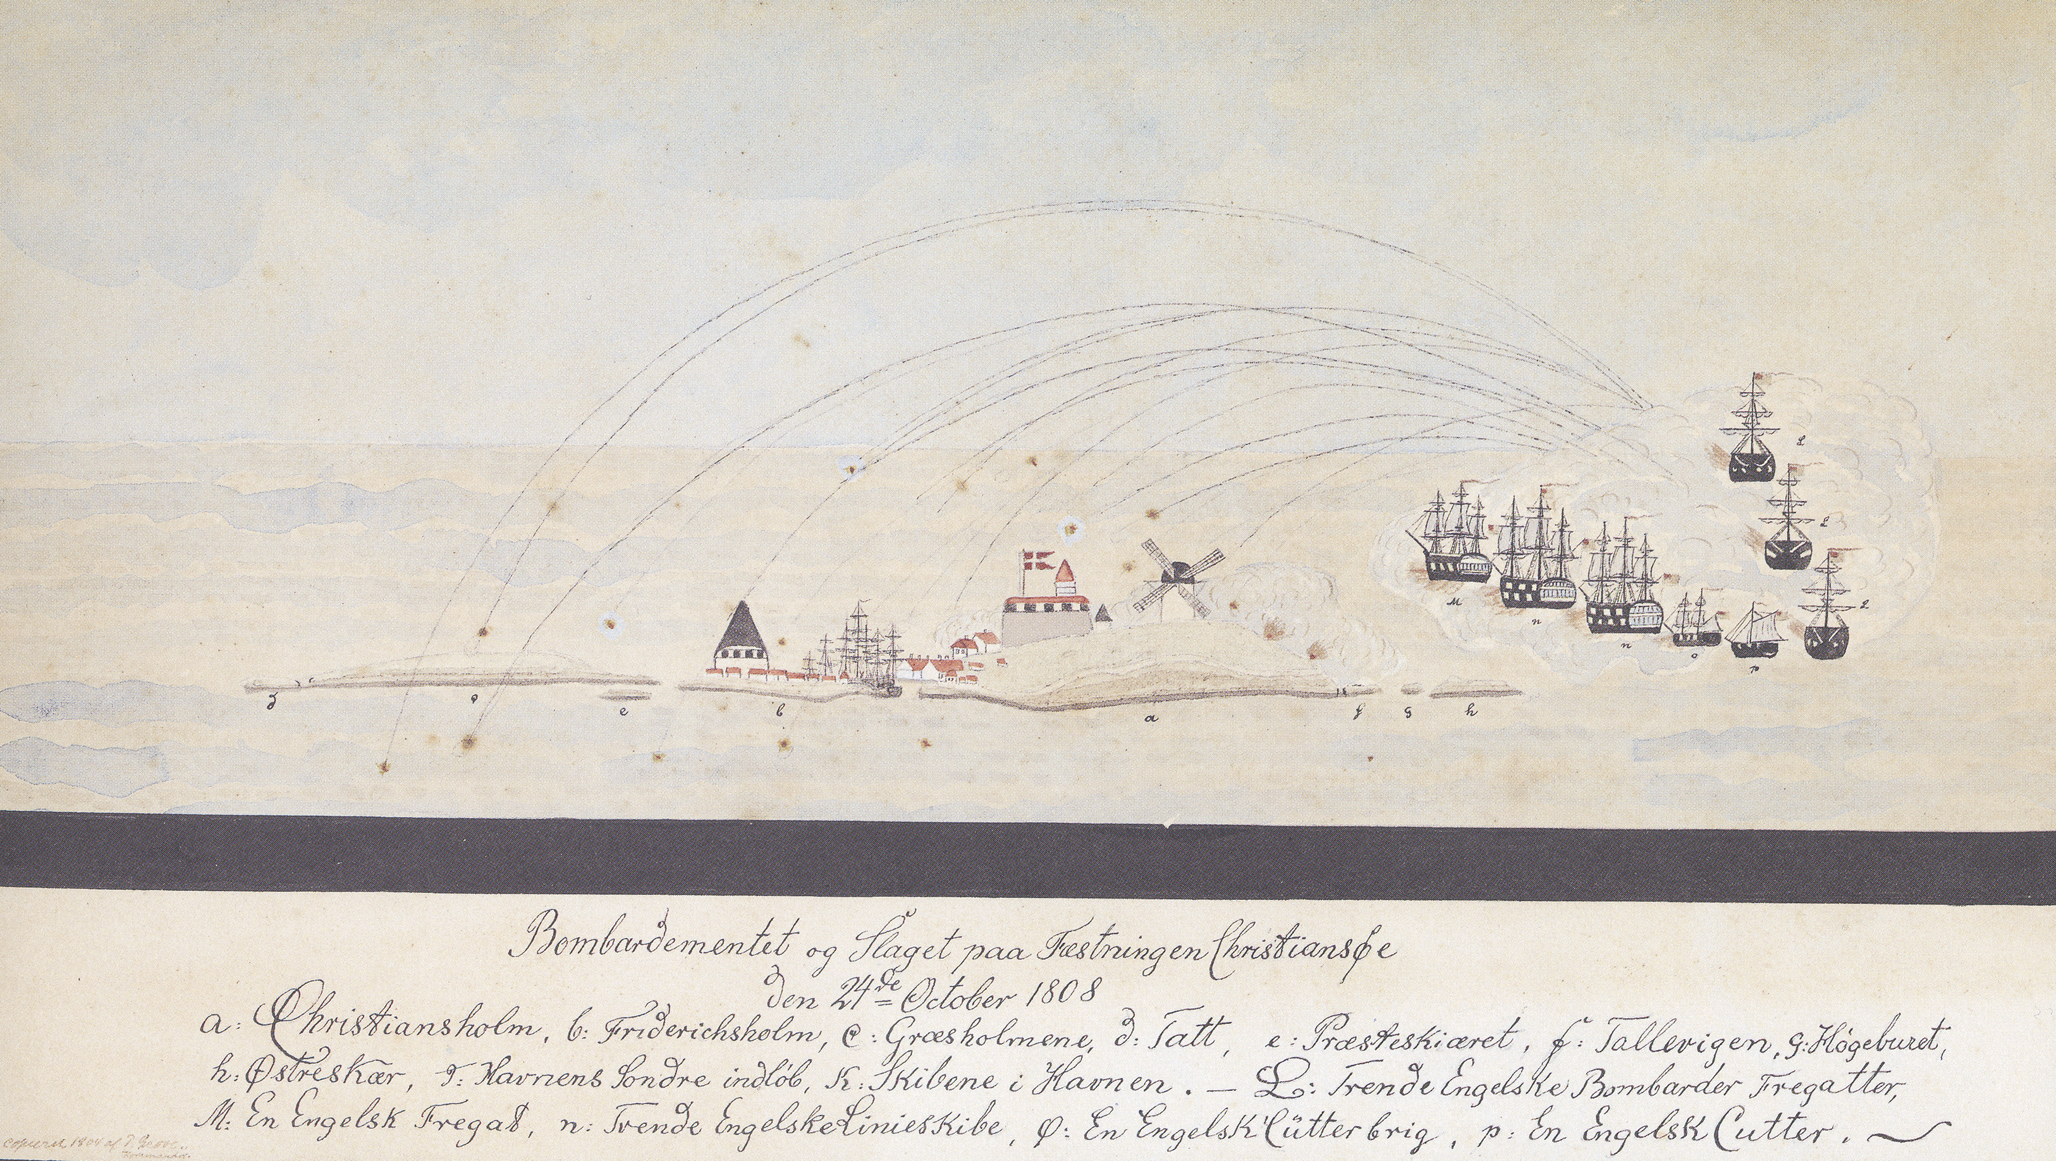 L
L
L
M
n
n
o
p
d
c
e
b
a
f
g
h
Bombardementet og Slaget paa Fæstningen Christiansøe
den 24de October 1808
a: Christiansholm, b: Friderichsholm, c: Græsholmene, d: Tatt, e: Præsteskiæret, f: Tallevigen, g: Högeburet,
h: Østreskær, I: Havnens Søndre indløb, K: Skibene i Havnen. — L: Trende Engelske Bombarder Fregatter,
M: En Engelsk Fregat, n: Tvende Engelske Linieskibe, O: En Engelsk Cütterbrig, p: En Engelsk Cutter.
copieret af